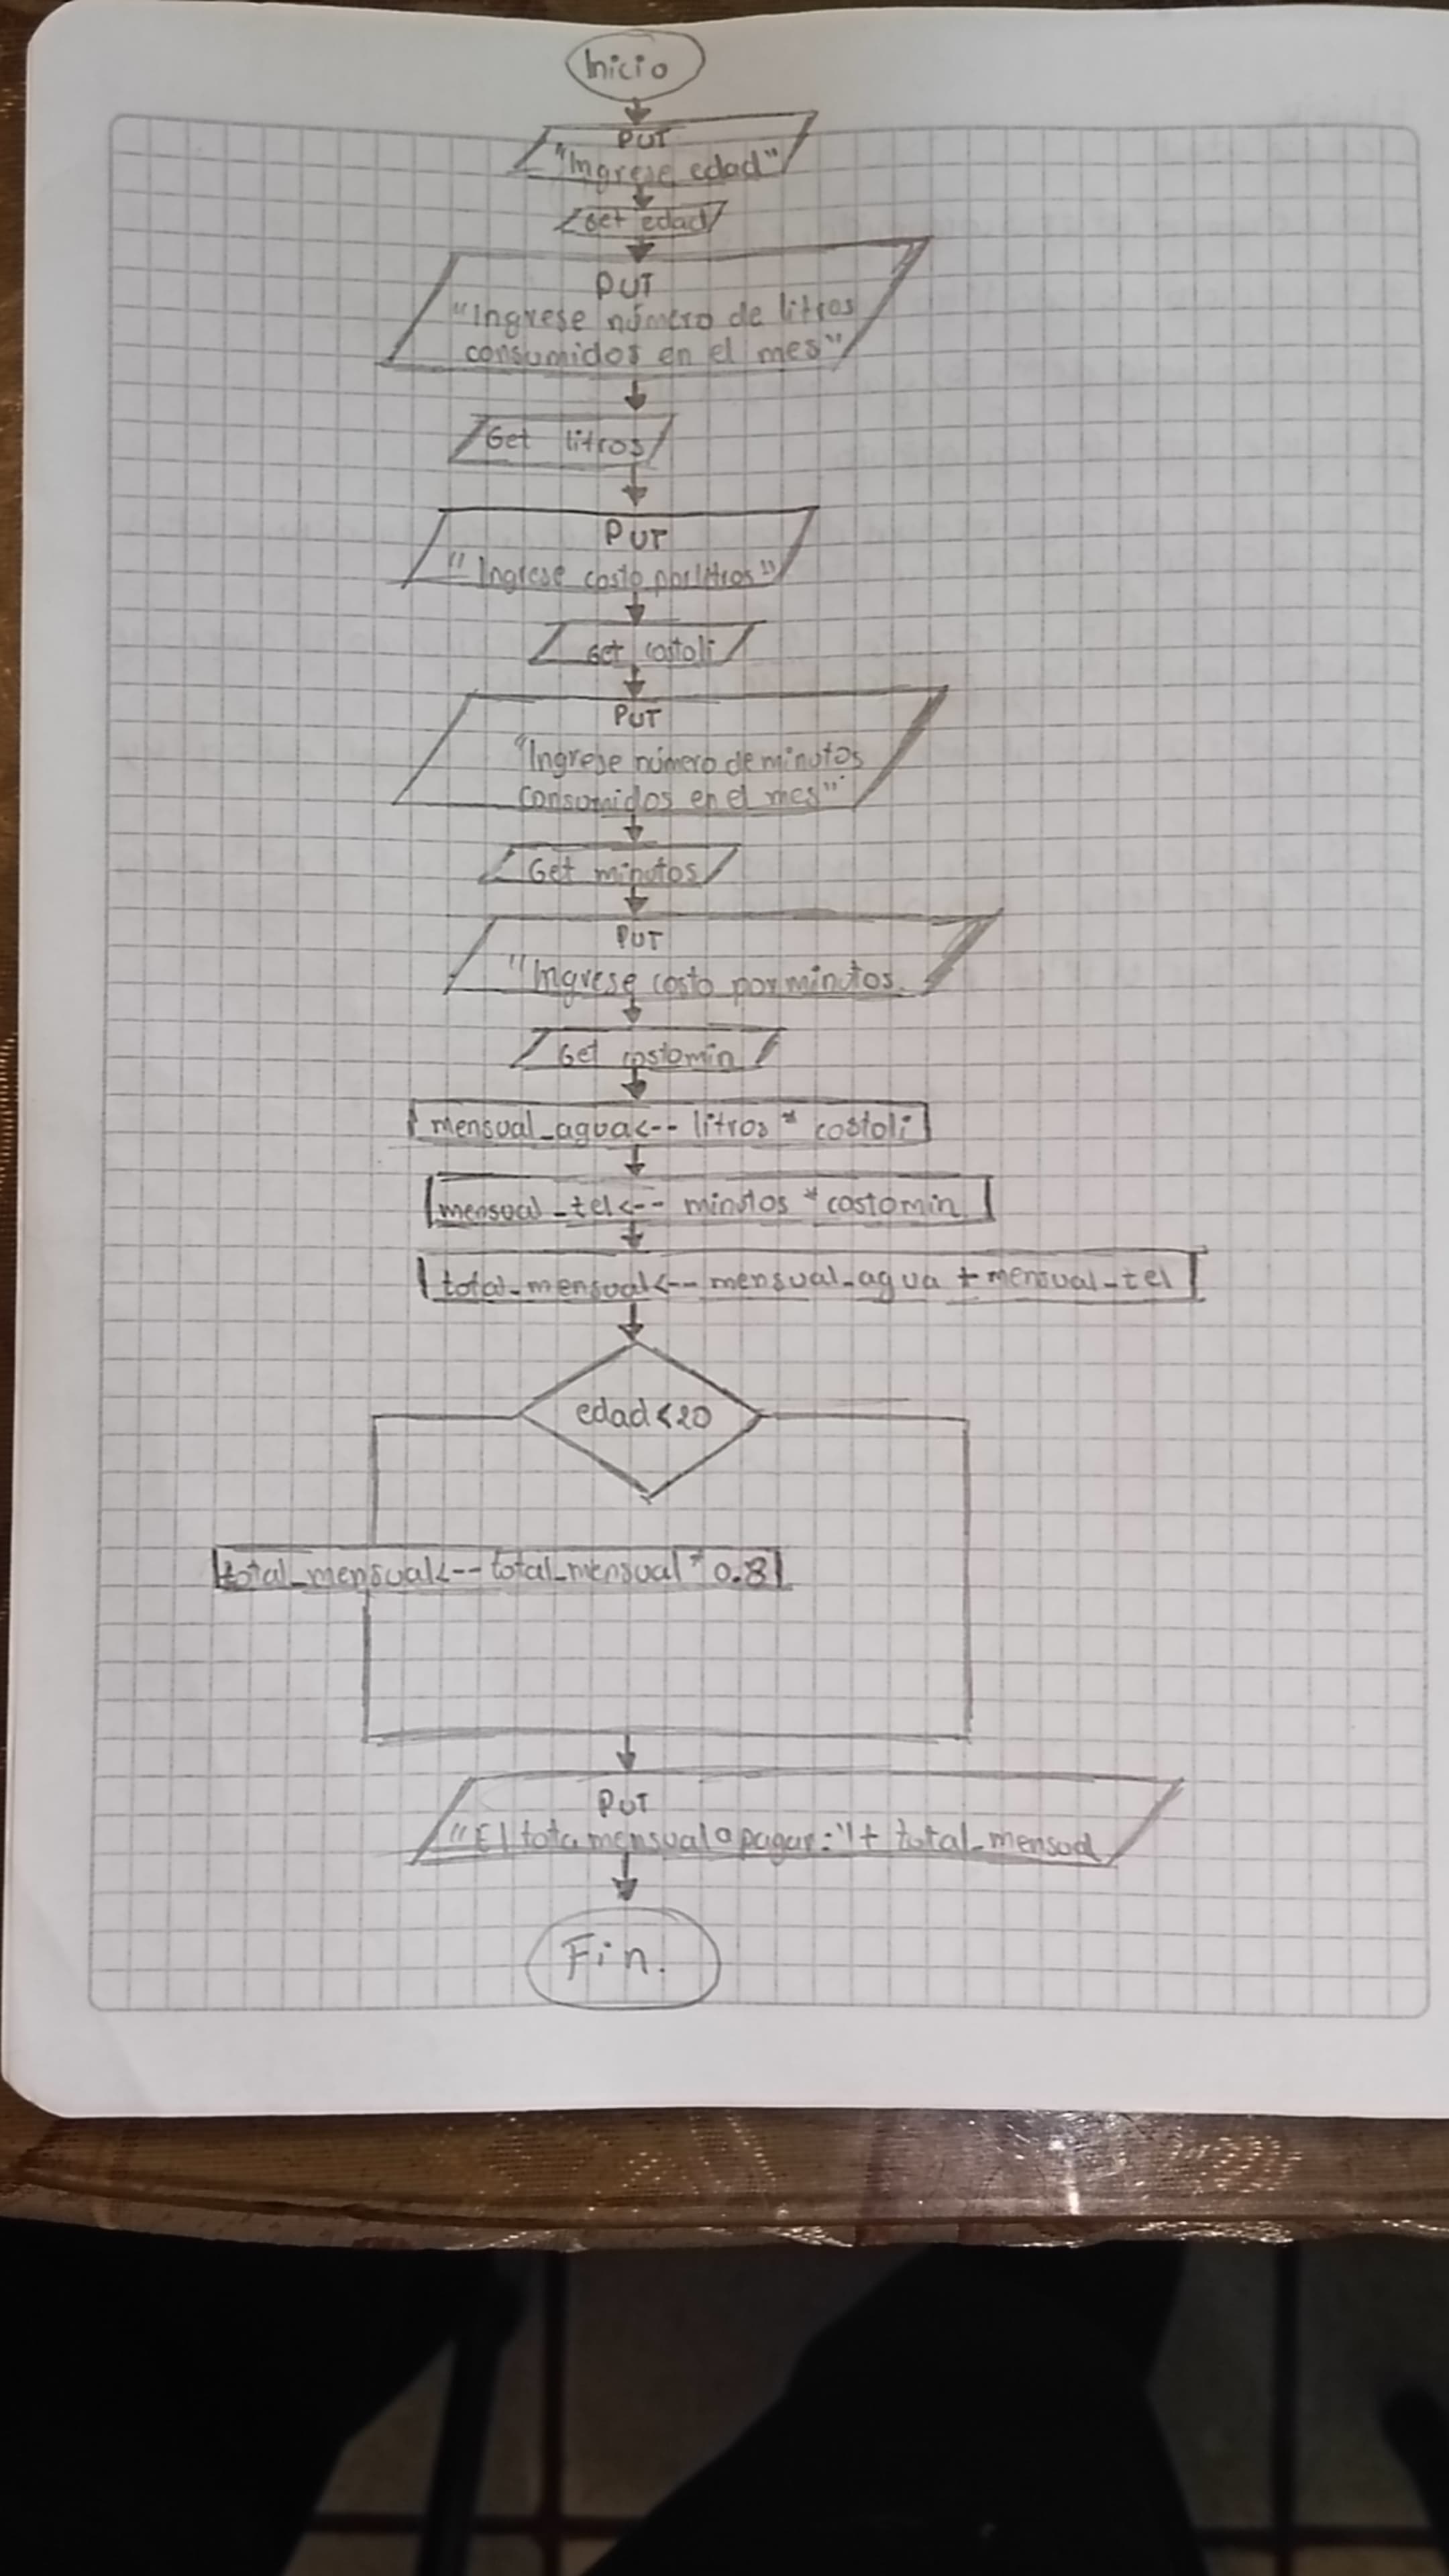 Inicio
PUT
"Ingrese edad"
Get edad
PUT
"Ingrese número de litros
consumidos en el mes"
Get litros
PUT
"Ingrese costo por litros"
Get costoli
PUT
"Ingrese número de minutos
consumidos en el mes"
Get minutos
PUT
"Ingrese costo por minutos.
Get costomin
mensual_agua<-- litros * costoli
mensual_tel<-- minutos * costomin
total_mensual<-- mensual_agua + mensual_tel
edad<20
total_mensual<-- total_mensual * 0.8
PUT
"El tota mensual a pagar:"+ total_mensual
Fin.